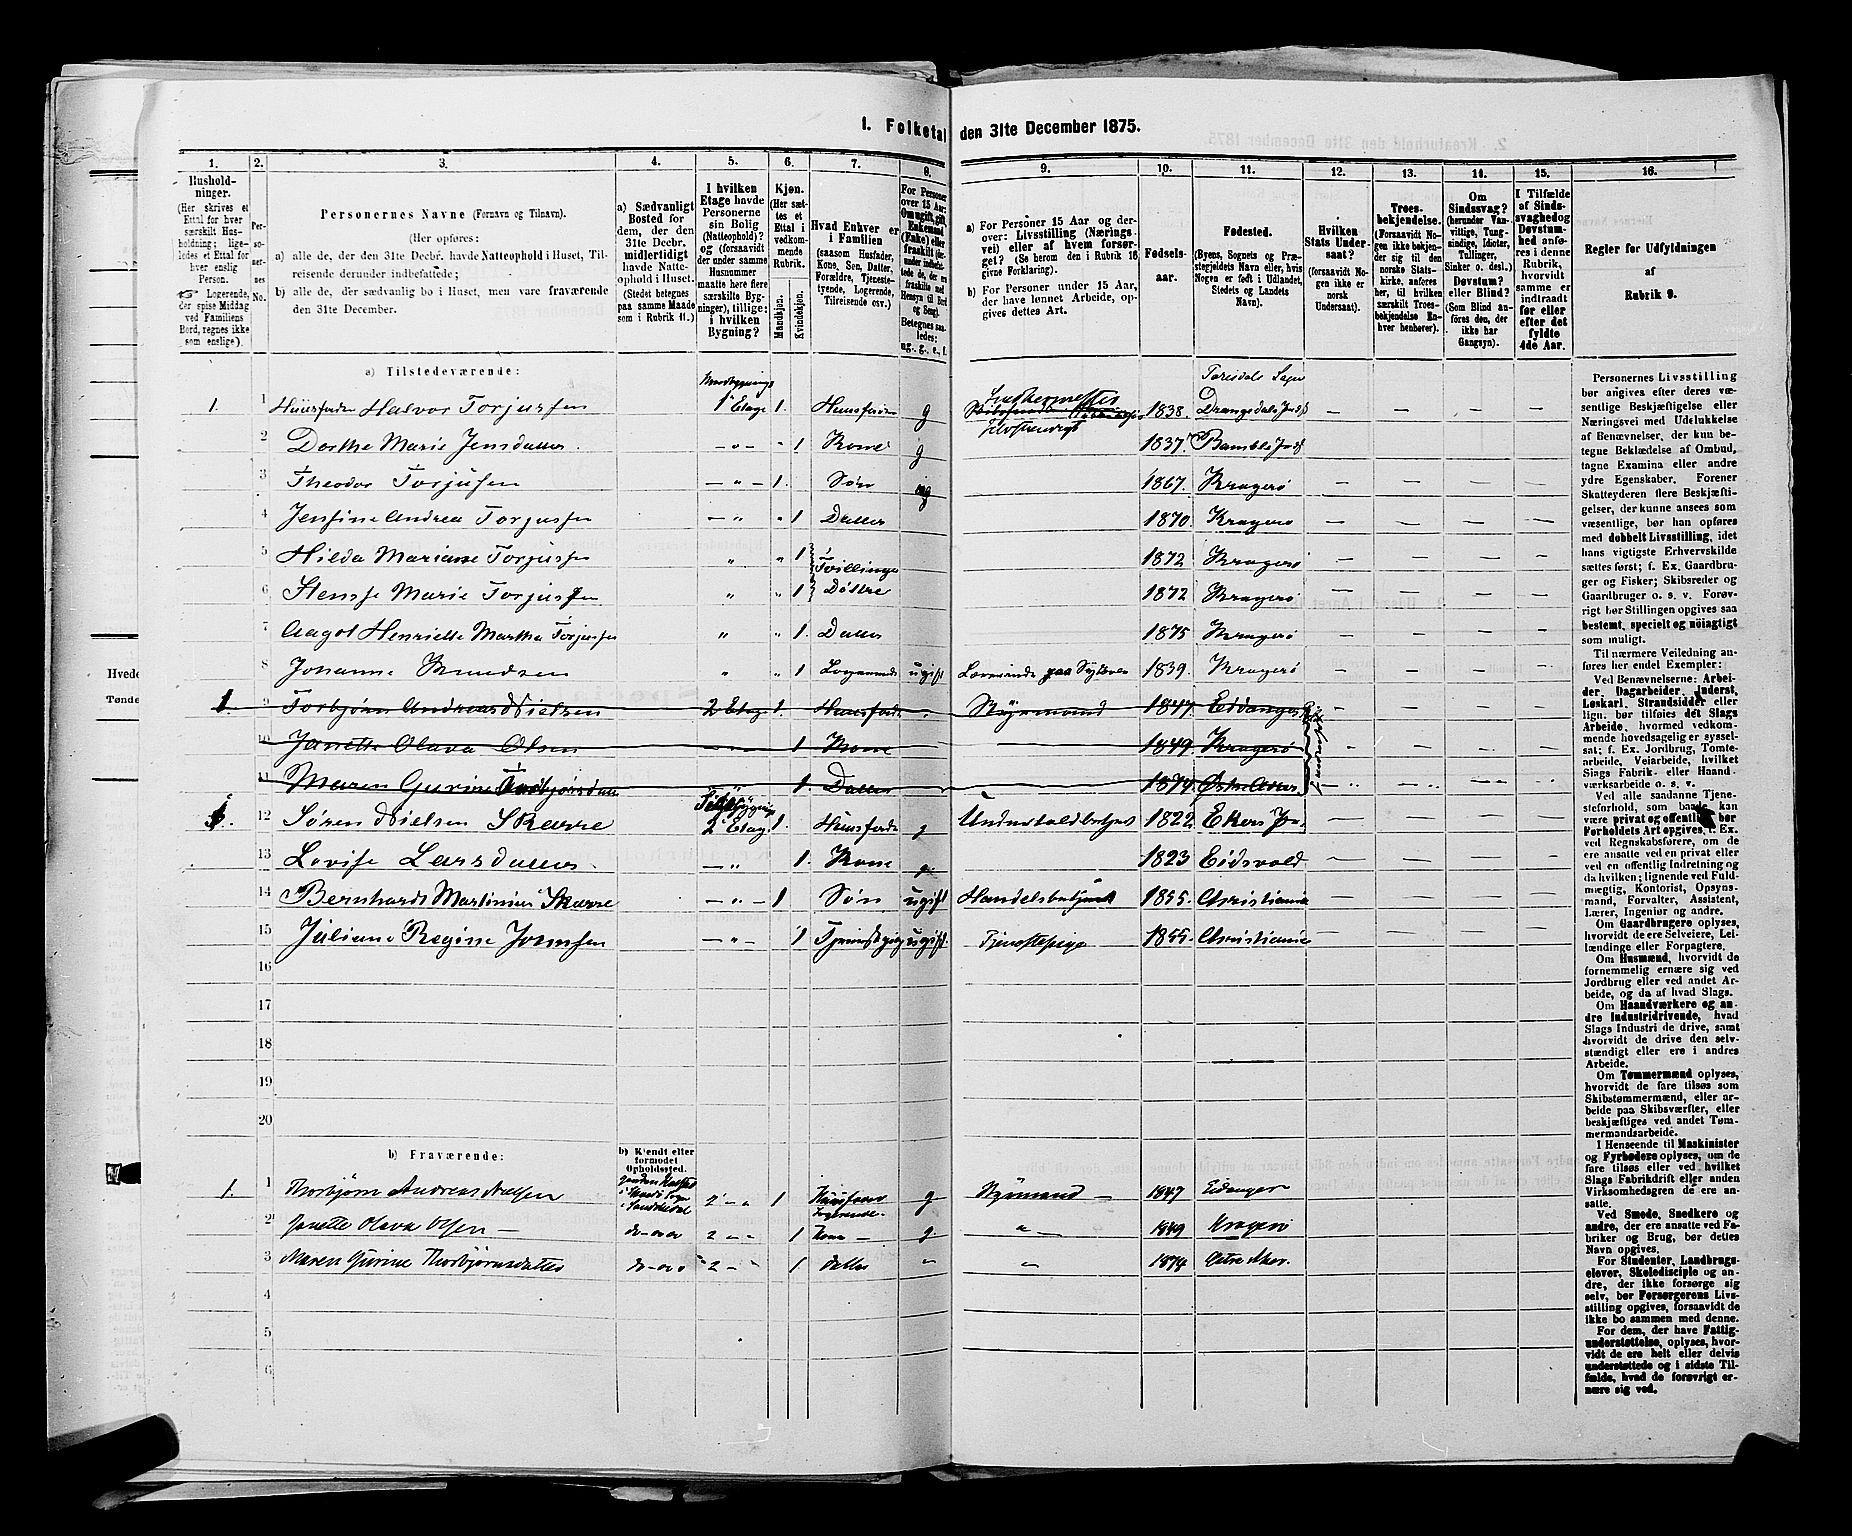 1. Folketal den 31te December 1875.
1. 2. 3. 4. 5. 6. 7. 8. 9. 10. 11. 12. 13. 14. 15. 16.
Husholdninger.
(Her skrives et Ettal for hver særskilt Husholdning; ligeledes et Ettal for hver enslig Person.
☞ Logerende, der spise Middag ved Familiens Bord, regnes ikke som enslige).
Personernes No.
Personernes Navne (Fornavn og Tilnavn).
(Her opføres:
a) alle de, der den 31te Decbr. havde Natteophold i Huset, Tilreisende derunder indbefattede;
b) alle de, der sædvanlig bo i Huset, men vare fraværende den 31te December.
a) Sædvanligt Bosted for dem, der den 31te Decbr. midlertidigt havde Natteophold i Huset. (Stedet betegnes paa samme Maade som i Rubrik 11.)
I hvilken Etage havde Personerne sin Bolig (Natteophold)? og (forsaavidt der under samme Husnummer maatte høre flere særskilte Bygninger), tillige: i hvilken Bygning?
Kjøn. (Her sættes et Ettal i vedkommende Rubrik.
Mandkjøn. Kvindekjøn.
Hvad Enhver er i Familien (saasom Husfader, Kone, Søn, Datter, Forældre, Tjenestetyende, Logerende, Tilreisende osv.)
For Personer over 15 Aar: Om ugift, gift, Enkemand (Enke) eller fraskilt
Betegnes saaledes: ug., g., e., f.
a) For Personer 15 Aar og derover: Livsstilling (Næringsvei) eller af hvem forsørget? (Se herom den i Rubrik 16 givne Forklaring).
b) For Personer under 15 Aar, der have lønnet Arbeide, opgives dettes Art.
Fødselsaar.
Fødested.
(Byens, Sognets og Præstegjeldets Navn eller, hvis Nogen er født i Udlandet, Stedets og Landets Navn).
Hvilken Stats Undersaat? (forsaavidt Nogen ikke er norsk Undersaat).
Troesbekjendelse. (Forsaavidt Nogen ikke bekjender sig til den norske Statskirke, anføres her, til hvilken særskilt Troesbekjendelse Enhver henhører).
Om Sindssvag? (herunder Vanvittige, Tungsindige, Idioter, Tullinger, Sinker o. desl.) Døvstum? eller Blind? (Som Blind anføres den, der ikke har Gangsyn).
I Tilfælde af Sindssvaghed og Døvstumhed anføres i denne Rubrik, hvorvidt samme er indtraadt før eller efter det fyldte 4de Aar.
Regler for Udfyldningen af Rubrik 9.
a) Tilstedeværende:
1. 1 Huusfader Halvor Torjussen 1 Etage 1. Huusfader g 1838. Drangedals
2 Dorthe Marie Jensdatter 1 Kone g 1837 Bamble
3 Theodor Torjusen 1. Søn ug 1867. Kragerø
4 Jensine Andrea Torjussen 1 Datter 1870. Kragerø
5 Hilda Mariane Torjussen 1 Tvillinge 1872 Kragerø
6 Marie Torjussen 1 Døttre 1872 Kragerø
7 Aagot Henriette Martha Torjussen 1. Datter 1875 Kragerø
8 Johanne Knudsen 1 Logerende ugift 1839. Kragerø
1. 9 Torbjørn Andreas Nielsen 2 Etage 1. Huusfader 1847. Eidanger
10 Janette Olava Olsen 1 Kone 1849. Kragerø
11 Maren Gurine Thorbjørnsdatter 1. Datter 1874. Østre Aker
12 Søren Nielsen Skarre 2 Etage 1. Huusfader g 1822. Eker
13 Lovise Larsdatter 1. Kone g 1823 Eidsvold
14 Bernhardt Martinius Skarre 1 Søn ugift Handelsbetjent 1855. Christiania
15 Juliane Regine Jormsen 1 ugift. Tjenestepige 1855. Christiania
16
17
18
19
20
b) Fraværende:
b) Kjendt eller formodet Opholdssted.
1. 1 Thorbjørn Andreas Nielsen 2 1 Huusfader Logerende g 1847 Eidanger
2 Janette Olava Olsen 2 1 Kone g. 1849 Kragerø
3 Maren Gurine Thorbjørnsdatter 2 1. datter 1874 Østre Aker.
4
5
6
Personernes Livsstilling bør angives efter deres væsentlige Beskjæftigelse eller Næringsvei med Udelukkelse af Benævnelser, der kun betegne Beklædelse af Ombud, tagne Examina eller andre ydre Egenskaber. Forener Skatteyderen flere Beskjæftigelser, der kunne ansees som væsentlige, bør han opføres med dobbelt Livsstilling, idet hans vigtigste Erhvervskilde sættes først; f. Ex. Gaardbruger og Fisker; Skibsreder og Gaardbruger o. s. v. Forøvrigt bør Stillingen opgives saa bestemt, specielt og nøiagtigt som muligt.
Til nærmere Veiledning anføres her endel Exempler:
Ved Benævnelserne: Arbeider, Dagarbeider, Inderst, Løskarl, Strandsidder eller lign. bør tilføies det Slags Arbeide, hvormed vedkommende hovedsagelig er sysselsat; f. Ex. Jordbrug, Tomtearbeide, Veiarbeide, hvilket Slags Fabrik- eller Haandværksarbeide o. s. v.
Ved alle saadanne Tjenesteforhold, som baade kan være private og offentlige, bør Forholdets Art opgives, f. Ex. ved Regnskabsførere, om de ere ansatte ved en privat eller ved en offentlig Indretning og da hvilken; lignende ved Fuldmægtig, Kontorist, Opsynsmand, Forvalter, Assistent, Lærer, Ingeniør og andre.
Om Gaardbrugere oplyses, hvorvidt de ere Selveiere, Leilændinge eller Forpagtere.
Om Husmænd, hvorvidt de fornemmelig ernære sig ved Jordbrug eller ved andet Arbeide, og da af hvad Slags.
Om Haandværkere og andre Industridrivende, hvad Slags Industri de drive, samt hvorvidt de drive den selvstændigt eller ere i andres Arbeide.
Om Tømmermænd oplyses, hvorvidt de fare tilsøs som Skibstømmermænd, eller arbeide paa Skibsværfter, eller beskjæftiges ved andet Tømmermandsarbeide.
I Henseende til Maskinister og Fyrbødere oplyses, om de fare tilsøs eller ved hvilket Slags Fabrikdrift eller anden Virksomhedsgren de ere ansatte.
Ved Smede, Snedkere og andre, der ere ansatte ved Fabriker og Brug, bør dettes Navn opgives.
For Studenter, Landbrugselever, Skoledisciple og andre, der ikke forsørge sig selv, bør Forsørgerens Livsstilling opgives, forsaavidt de ikke bo sammen med denne.
For dem, der have Fattigunderstøttelse, oplyses, hvorvidt de ere helt eller delvis understøttede og i sidste Tilfælde, hvad de forøvrigt ernære sig ved.
Hvede
Tønde